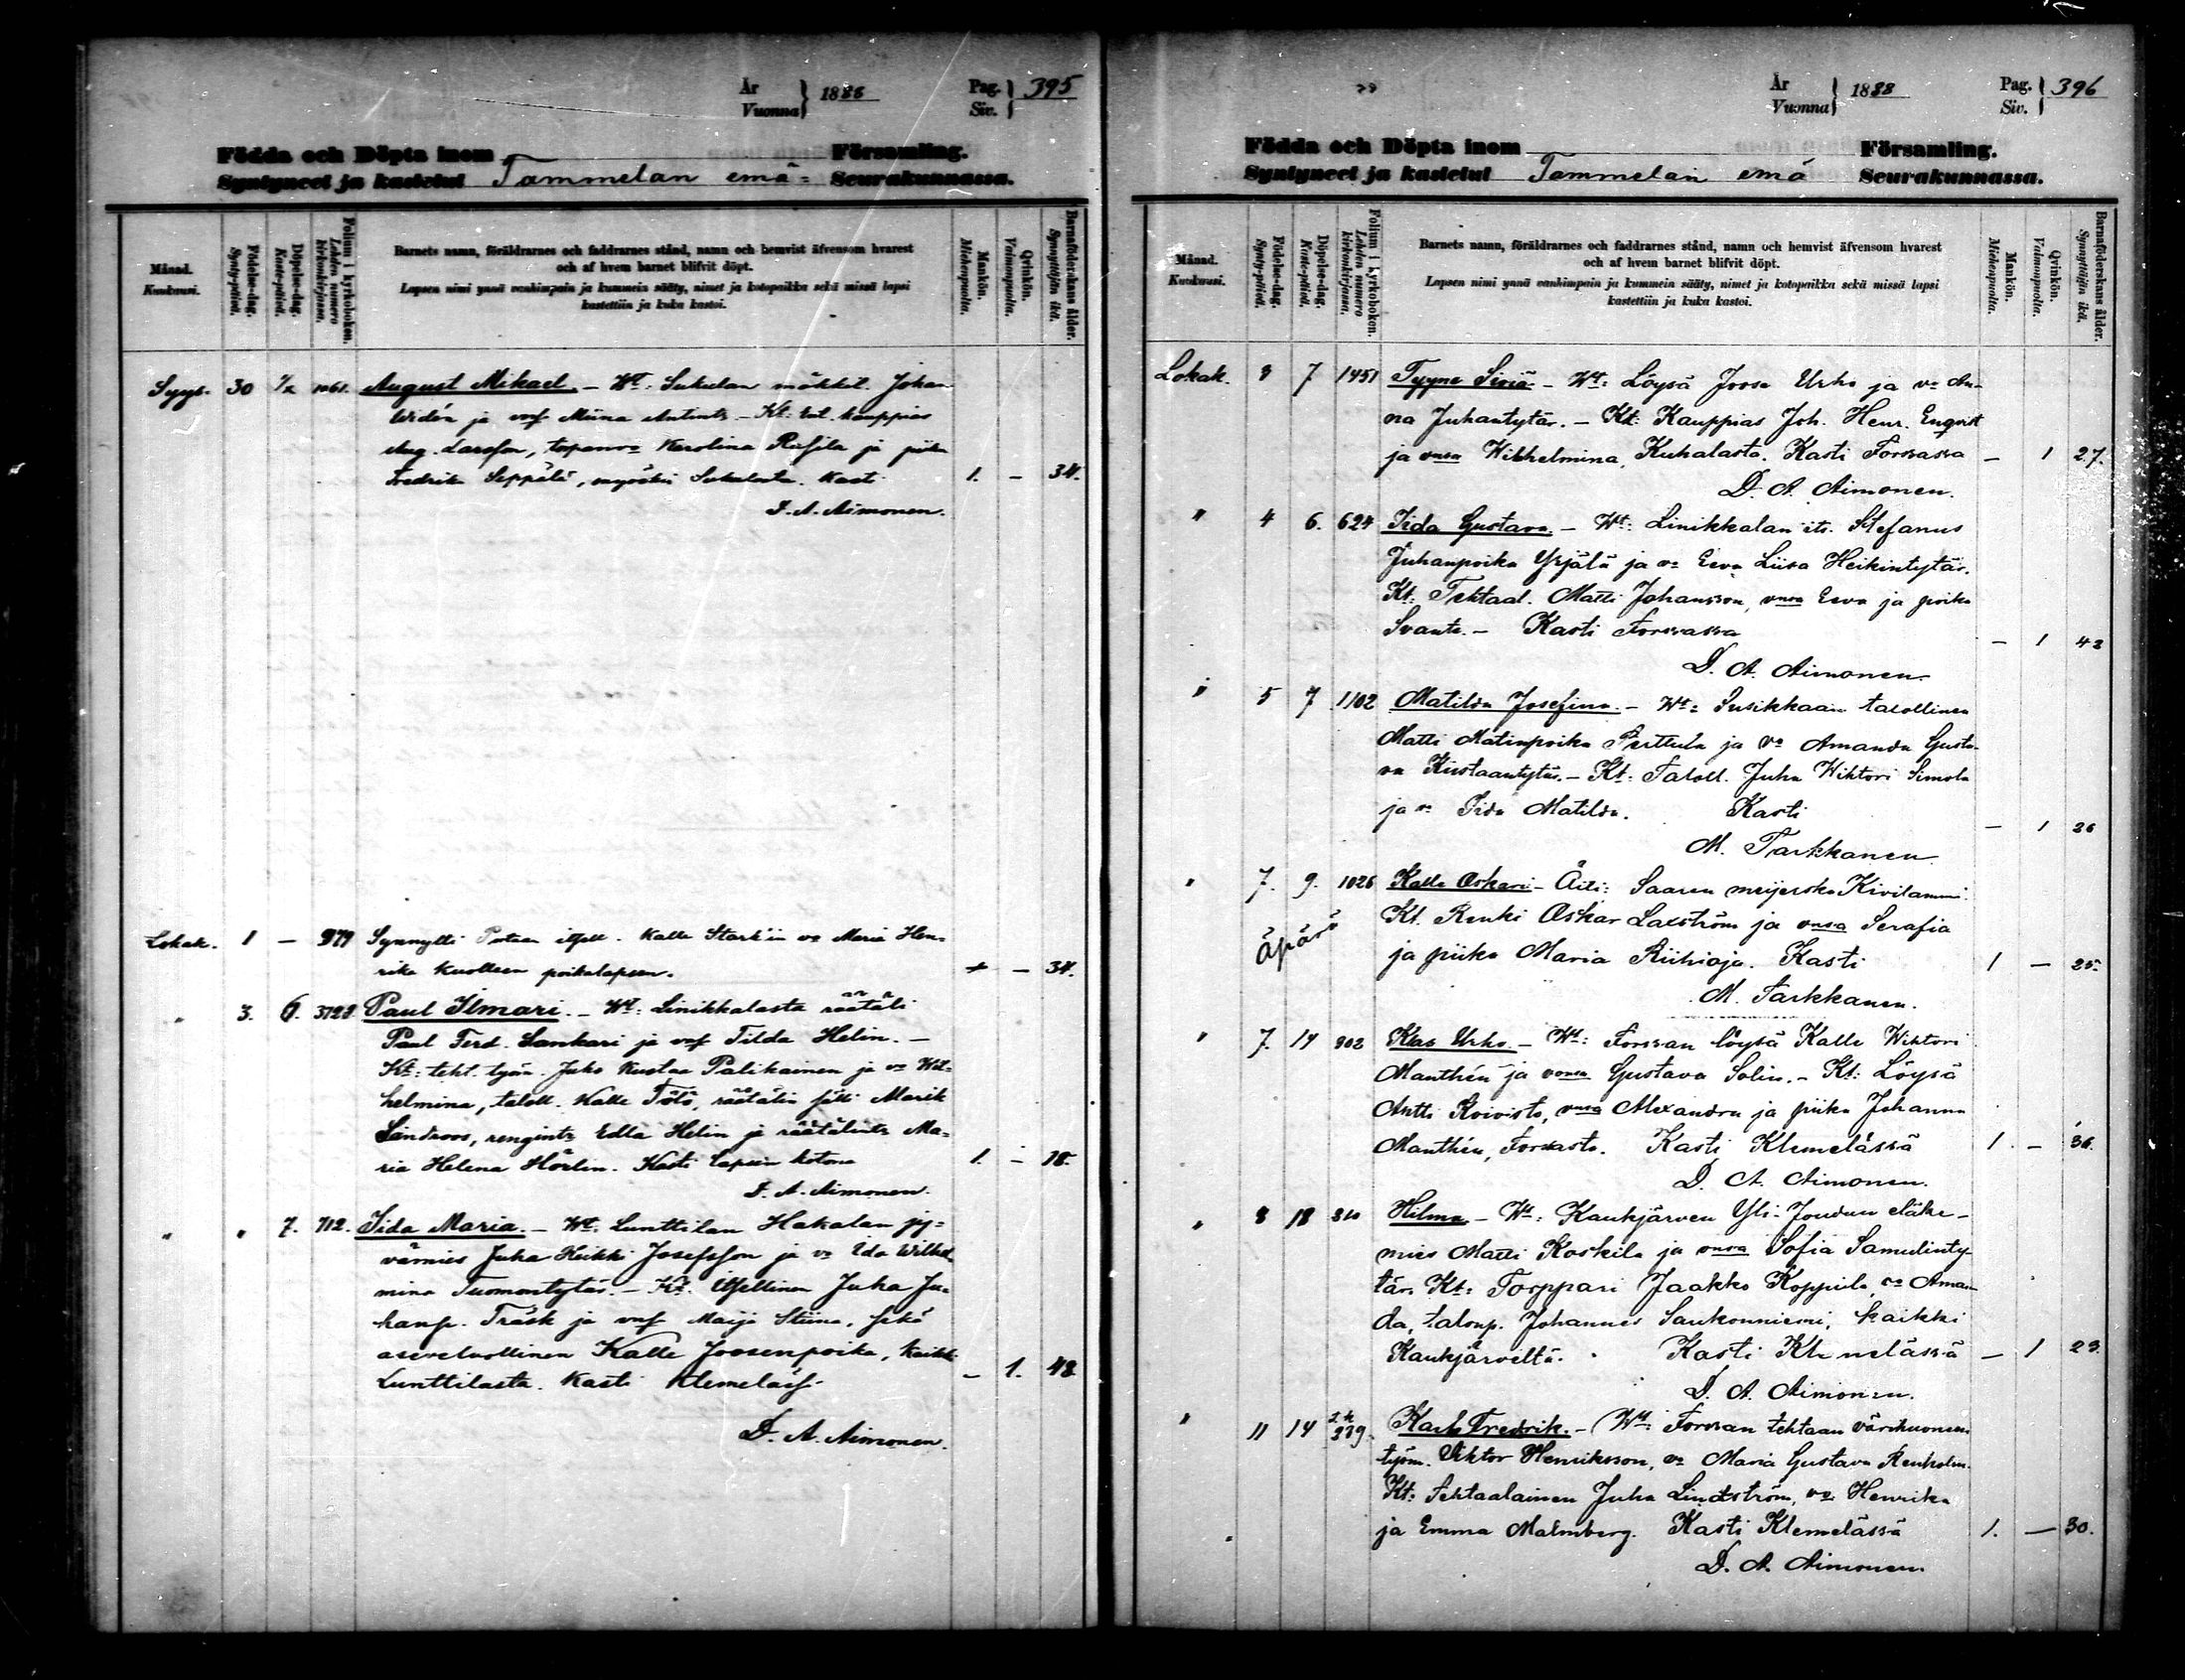 År
Vuonna } 1888 Pag.
Siv. } 395
Födda och Döpta inom Församling.
Syntyneet ja kastetut Tammelan emä= Seurakunnassa.
Månad.
Kuukausi.
Födelse-dag.
Synty-päivä.
Döpelse-dag.
Kaste-päivä.
Folium i kyrkoboken.
Lehden numero kirkonkirjassa.
Barnets namn, föräldrarnes och faddrarnes stånd, namn och hemvist äfvensom hvarest
och af hvem barnet blifvit döpt.
Lapsen nimi ynnä vanhimpain ja kummein sääty, nimet ja kotopaikka sekä missä lapsi
kastettiin ja kuka kastoi.
Mankön.
Miehenpuolta.
Qvinkön.
Vaimonpuolta.
Barnaföderskans ålder.
Synnyttäjän ikä.
Syys. 30 1/x 1061. August Mikael. - Wt: Sukulan mökkil. Johan
Widén ja Miina - Kt: kauppias
Aug. Larsson, Karolina ja
Fredrika Seppälä, Sukulasta. Kast. 1. - 34.
D. A. Aimonen.
Lokak. 1 - 979 Synnytti itsell. Kalle Stark'in vo Maria Hen-
rika kuolleen poikalapsen. + - 34.
" 3. 6. 3128 Paul Ilmari. - Wt: Linikkalasta räätäli
Paul Ferd. Sankari ja Tilda Helin. -
Kt: teht. työn. Juho Kustaa Palikainen ja vo Wil-
helmina, taloll. Kalle Tötö, räätälin
Sandroos, Edla Helin ja Ma-
ria Helena Hörlin. Kasti lapsen kotona 1. - 18.
D. A. Aimonen.
" " 7. 712. Iida Maria. - Wt: Lunttilan Hakalan jy-
vämies Juha Heikki Josefsson ja vo Ida Wilhel-
mina Tuomontytär. - Kt: Itsellinen Juha Ju-
hanp. Träsk ja Maija Stiina, sekä
asevelvollinen Kalle Joosenpoika, kaikki
Lunttilasta. Kasti Klemeläss. - 1. 42
D. A. Aimonen.
År
Vuonna } 1888 Pag.
Siv. } 396
Födda och Döpta inom Församling.
Syntyneet ja kastetut Tammelan emä Seurakunnassa.
Månad.
Kuukausi.
Födelse-dag.
Synty-päivä.
Döpelse-dag.
Kaste-päivä.
Folium i kyrkoboken.
Lehden numero kirkonkirjassa.
Barnets namn, föräldrarnes och faddrarnes stånd, namn och hemvist äfvensom hvarest
och af hvem barnet blifvit döpt.
Lapsen nimi ynnä vanhimpain ja kummein sääty, nimet ja kotopaikka sekä missä lapsi
kastettiin ja kuka kastoi.
Mankön.
Miehenpuolta.
Qvinkön.
Vaimonpuolta.
Barnaföderskans ålder.
Synnyttäjän ikä.
Lokak. 3 7 1451 Tyyne Siviä - Wt: Löysä Joose Urho ja vo An-
na Juhantytär. - Kt: Kauppias Joh. Henr. Enqvist
ja vnsa Wilhelmina, Kuhalasta. Kasti Forssassa - 1 27.
D. A. Aimonen.
" 4 6. 624 Iida Gustava. - Wt: Linikkalan its. Stefanus
Juhanpoika Yrjälä ja vo Eeva Liisa Heikintytär.
Kt: Tehtaal. Matti Johansson, vnsa Eeva ja poika
Svante. - Kasti Forssassa - 1 42
D. A. Aimonen.
" 5 7 1102 Matilda Josefina. - Wt: Susikkaan talollinen
Matti Matinpoika Perttula ja vo Amanda Gusta-
va Kustaantytär. - Kt: Taloll. Juha Wihtori Simola
ja vo Iida Matilda. Kasti - 1 26
M. Tarkkanen.
" 7. 9. 1026 Kalle Oskari - Äiti: Saaren meijerska Kivilammi.
äpärä Kt. Renki Oskar Laxström ja vnsa Serafia
ja piika Maria Riihioja. Kasti 1 - 25.
M. Tarkkanen.
" 7. 14 902 Klas Urho. - Wt: Forssan löysä Kalle Wihtori
Manthén ja vnsa Gustava Solin. - Kt: Löysä
Antti Koivisto, vnsa Alexandra ja piika Johanna
Manthén, Forssasta. Kasti Klemelässä 1. - 36.
D. A. Aimonen.
" 8 18 310 Hilma - Wt: Kaukjärven Yli-Joudun eläke-
mies Matti Koskila ja vnsa Sofia Samulinty-
tär. Kt: Torppari Jaakko Koppila, vo Aman-
da, talonp. Johannes Saukonniemi, kaikki
Kaukjärveltä. Kasti Klemelässä - 1 23.
D. A. Aimonen.
" 11 14 t.k 239. Karl Fredrik. - Wt: Forssan tehtaan värihuoneen
työm. Viktor Henriksson, vo Maria Gustava Renholm.
Kt: Tehtaalainen Juha Lindström, vo Henrika
ja Emma Malmberg. Kasti Klemelässä 1. - 30.
D. A. Aimonen.